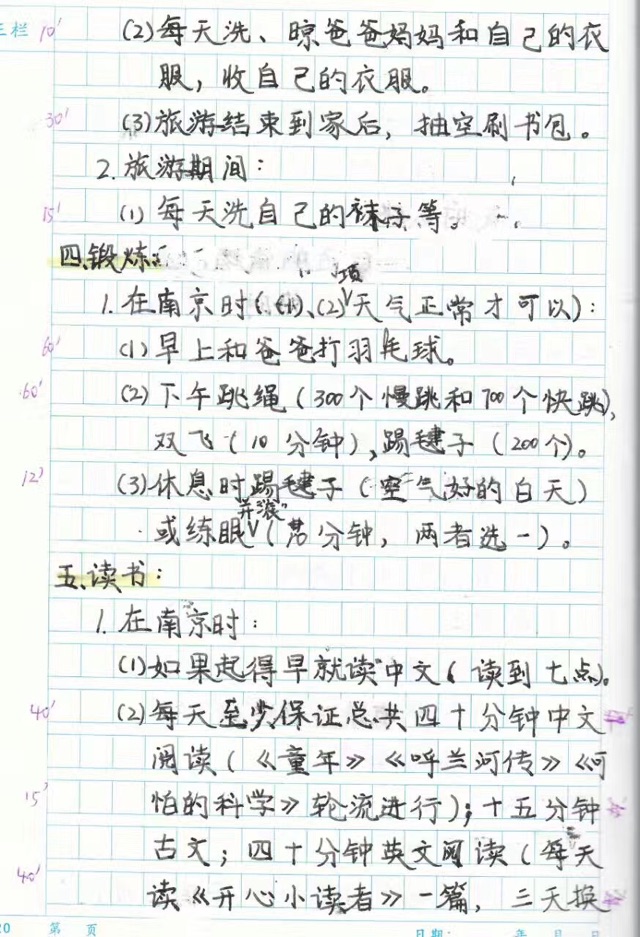 三栏 10' (2)每天洗、晾爸爸妈妈和自己的衣
服，收自己的衣服。
30' (3)旅游结束到家后，抽空刷书包。
2.旅游期间：
15' (1)每天洗自己的袜子等。
四、锻炼：
项
1.在南京时((1)、(2)∨天气正常才可以)：
60' (1)早上和爸爸打羽毛球。
60' (2)下午跳绳(300个慢跳和700个快跳)，
双飞(10分钟)，踢毽子(200个)。
12' (3)休息时踢毽子(空气好的白天)
并滚
或练眼∨(分钟，两者选一)。
五、读书：
1.在南京时：
(1)如果起得早就读中文(读到七点)。
40' (2)每天至少保证总共四十分钟中文
阅读(《童年》《呼兰河传》《可
15' 怕的科学》轮流进行)；十五分钟
古文；四十分钟英文阅读(每天
40' 读《开心小读者》一篇，三天换
20 第 页 日期： 年 月 日